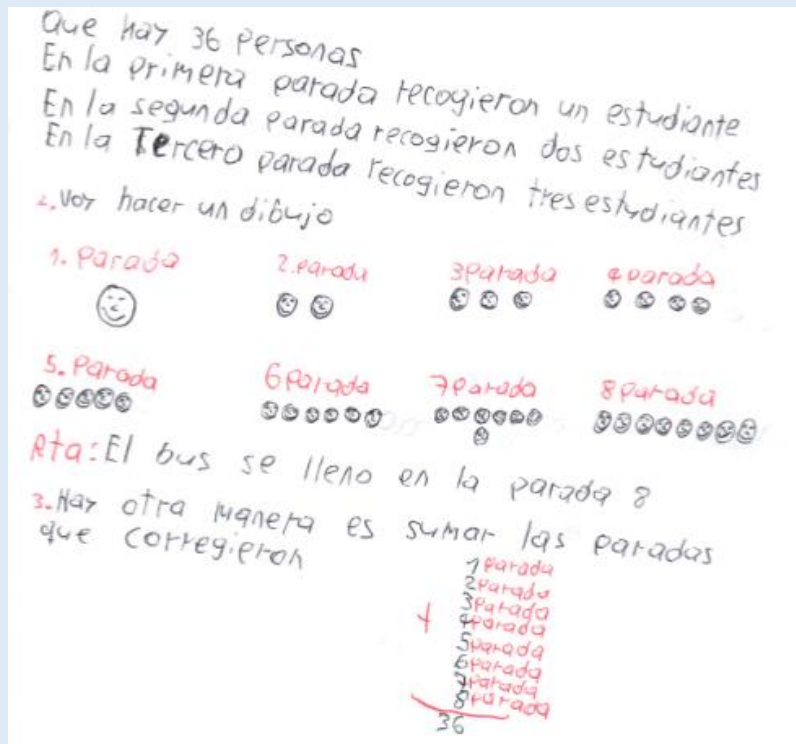 Que hay 36 Personas
En la primera parada recogieron un estudiante
En la segunda parada recogieron dos estudiantes
En la Tercero parada recogieron tres estudiantes
2. Voy hacer un dibujo
1. Parada 2. parada 3 parada 4 parada
5. Parada 6 parada 7 parada 8 parada
Rta: El bus se lleno en la parada 8
3. Hay otra manera es sumar las paradas
que corregieron
1 parada
2 parada
3 parada
+ 4 parada
5 parada
6 parada
7 parada
8 parada
36